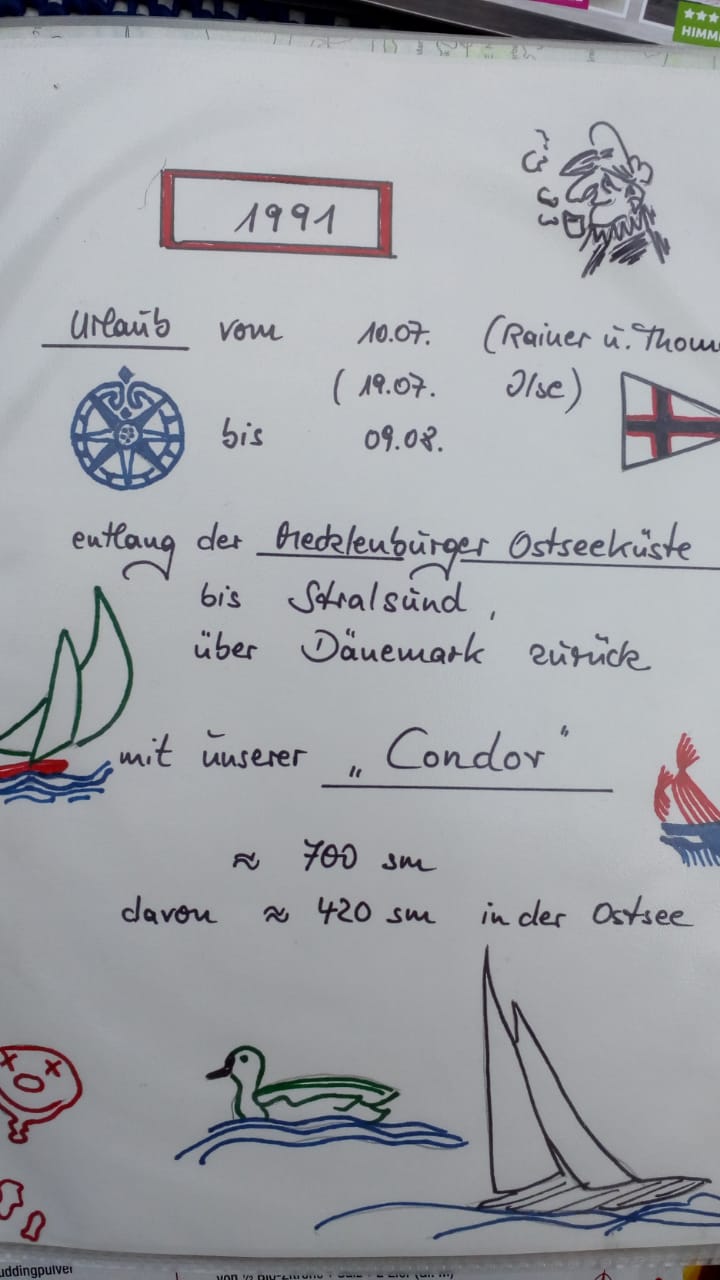 HIMM
1991
Urlaub vom 10.07. (Rainer u. Thom
(19.07. Ilse)
bis 09.08.
entlang der Mecklenburger Ostseeküste
bis Stralsund,
über Dänemark zurück
mit unserer „Condor"
≈ 700 sm
davon ≈ 420 sm in der Ostsee
uddingpulver